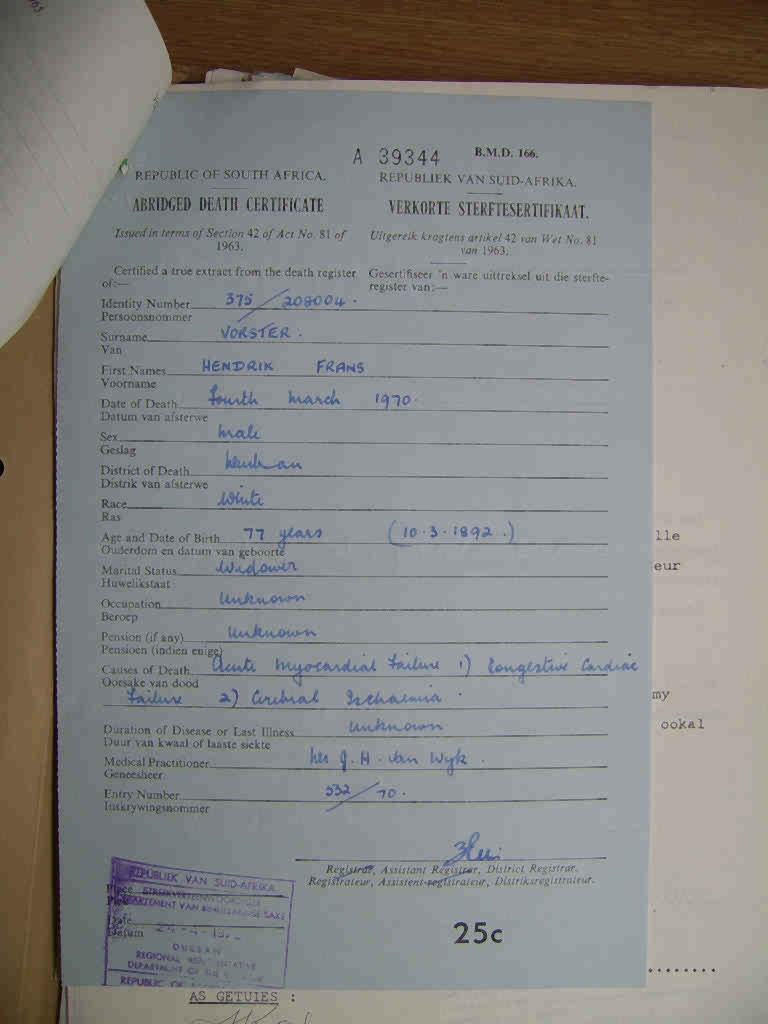 A 39344 B.M.D. 166.
REPUBLIC OF SOUTH AFRICA. REPUBLIEK VAN SUID-AFRIKA.
ABRIDGED DEATH CERTIFICATE VERKORTE STERFTESERTIFIKAAT.
Issued in terms of Section 42 of Act No. 81 of 1963. Uitgereik kragtens artikel 42 van Wet No. 81 van 1963.
Certified a true extract from the death register of:— Gesertifiseer 'n ware uittreksel uit die sterfte-register van:—
Identity Number 375/208004.
Persoonsnommer
Surname VORSTER.
Van
First Names HENDRIK FRANS
Voorname
Date of Death Fourth March 1970.
Datum van afsterwe
Sex Male
Geslag
District of Death Durban
Distrik van afsterwe
Race White
Ras
Age and Date of Birth 77 years (10.3.1892.)
Ouderdom en datum van geboorte
Marital Status Widower
Huwelikstaat
Occupation Unknown
Beroep
Pension (if any) Unknown
Pensioen (indien enige)
Causes of Death Acute Myocardial Failure 1) Congestive Cardiac
Oorsake van dood
Failure 2) Cerebral Ischaemia.
Duration of Disease or Last Illness Unknown
Duur van kwaal of laaste siekte
Medical Practitioner J. H. van Wyk.
Geneesheer
Entry Number 532/70.
Inskrywingsnommer
Registrar, Assistant Registrar, District Registrar.
Registrateur, Assistent-registrateur, Distriksregistrateur.
25c
REPUBLIEK VAN SUID-AFRIKA
Place
DEPARTEMENT VAN BINNELANDSE SAKE
Date
Datum
DURBAN
REGIONAL REPRESENTATIVE
DEPARTMENT OF THE
REPUBLIC OF
AS GETUIES :
lle
eur
my
ookal